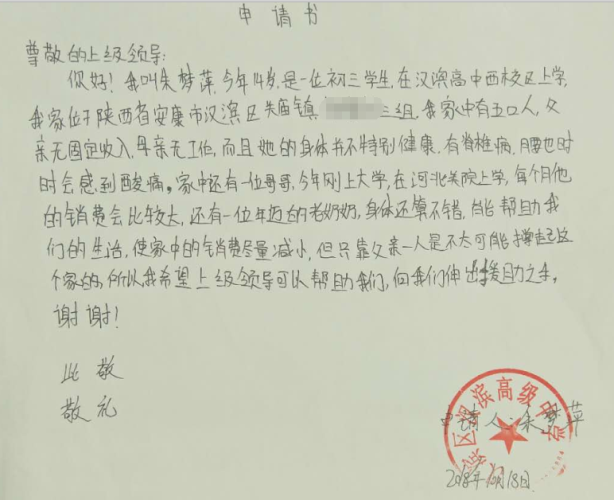 申请书
尊敬的上级领导:
你好!我叫朱梦萍,今年14岁,是一位初三学生,在汉滨高中西校区上学,
我家位于陕西省安康市汉滨区关庙镇 三组,我家中有五口人,父
亲无固定收入,母亲无工作,而且她的身体书不特别健康,有脊椎病,腰也时
时会感到酸痛。家中还有一位哥哥,今年刚上大学,在河北美院上学,每个月他
的销费会比较大,还有一位年迈的老奶奶,身体还算不错,能帮助我
们的生活,使家中的销费尽量减小,但只靠父亲一人是不太可能撑起这
个家的,所以我希望上级领导可以帮助我们,向我们伸出援助之手。
谢谢!
此敬
敬礼
区汉滨高级中学
申请人:朱梦萍
2018年10月18日